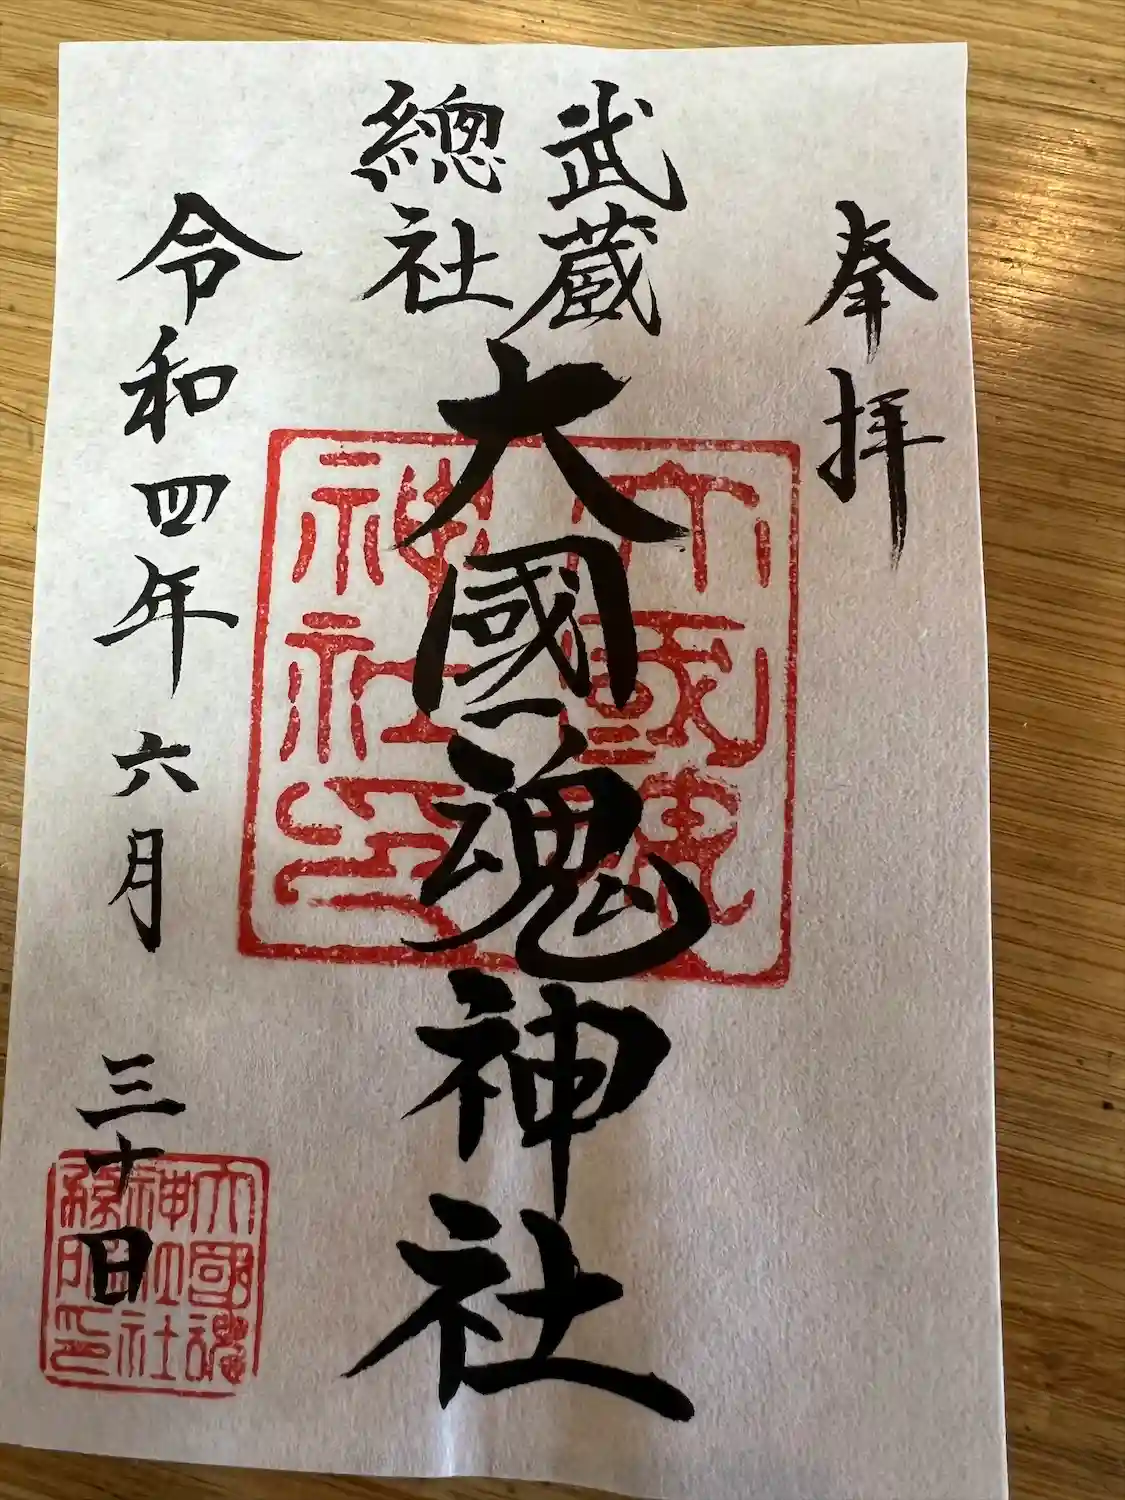 奉拝
武蔵
總社
大國魂神社
令和四年六月三十日
大國魂
神社印
大國魂
神社